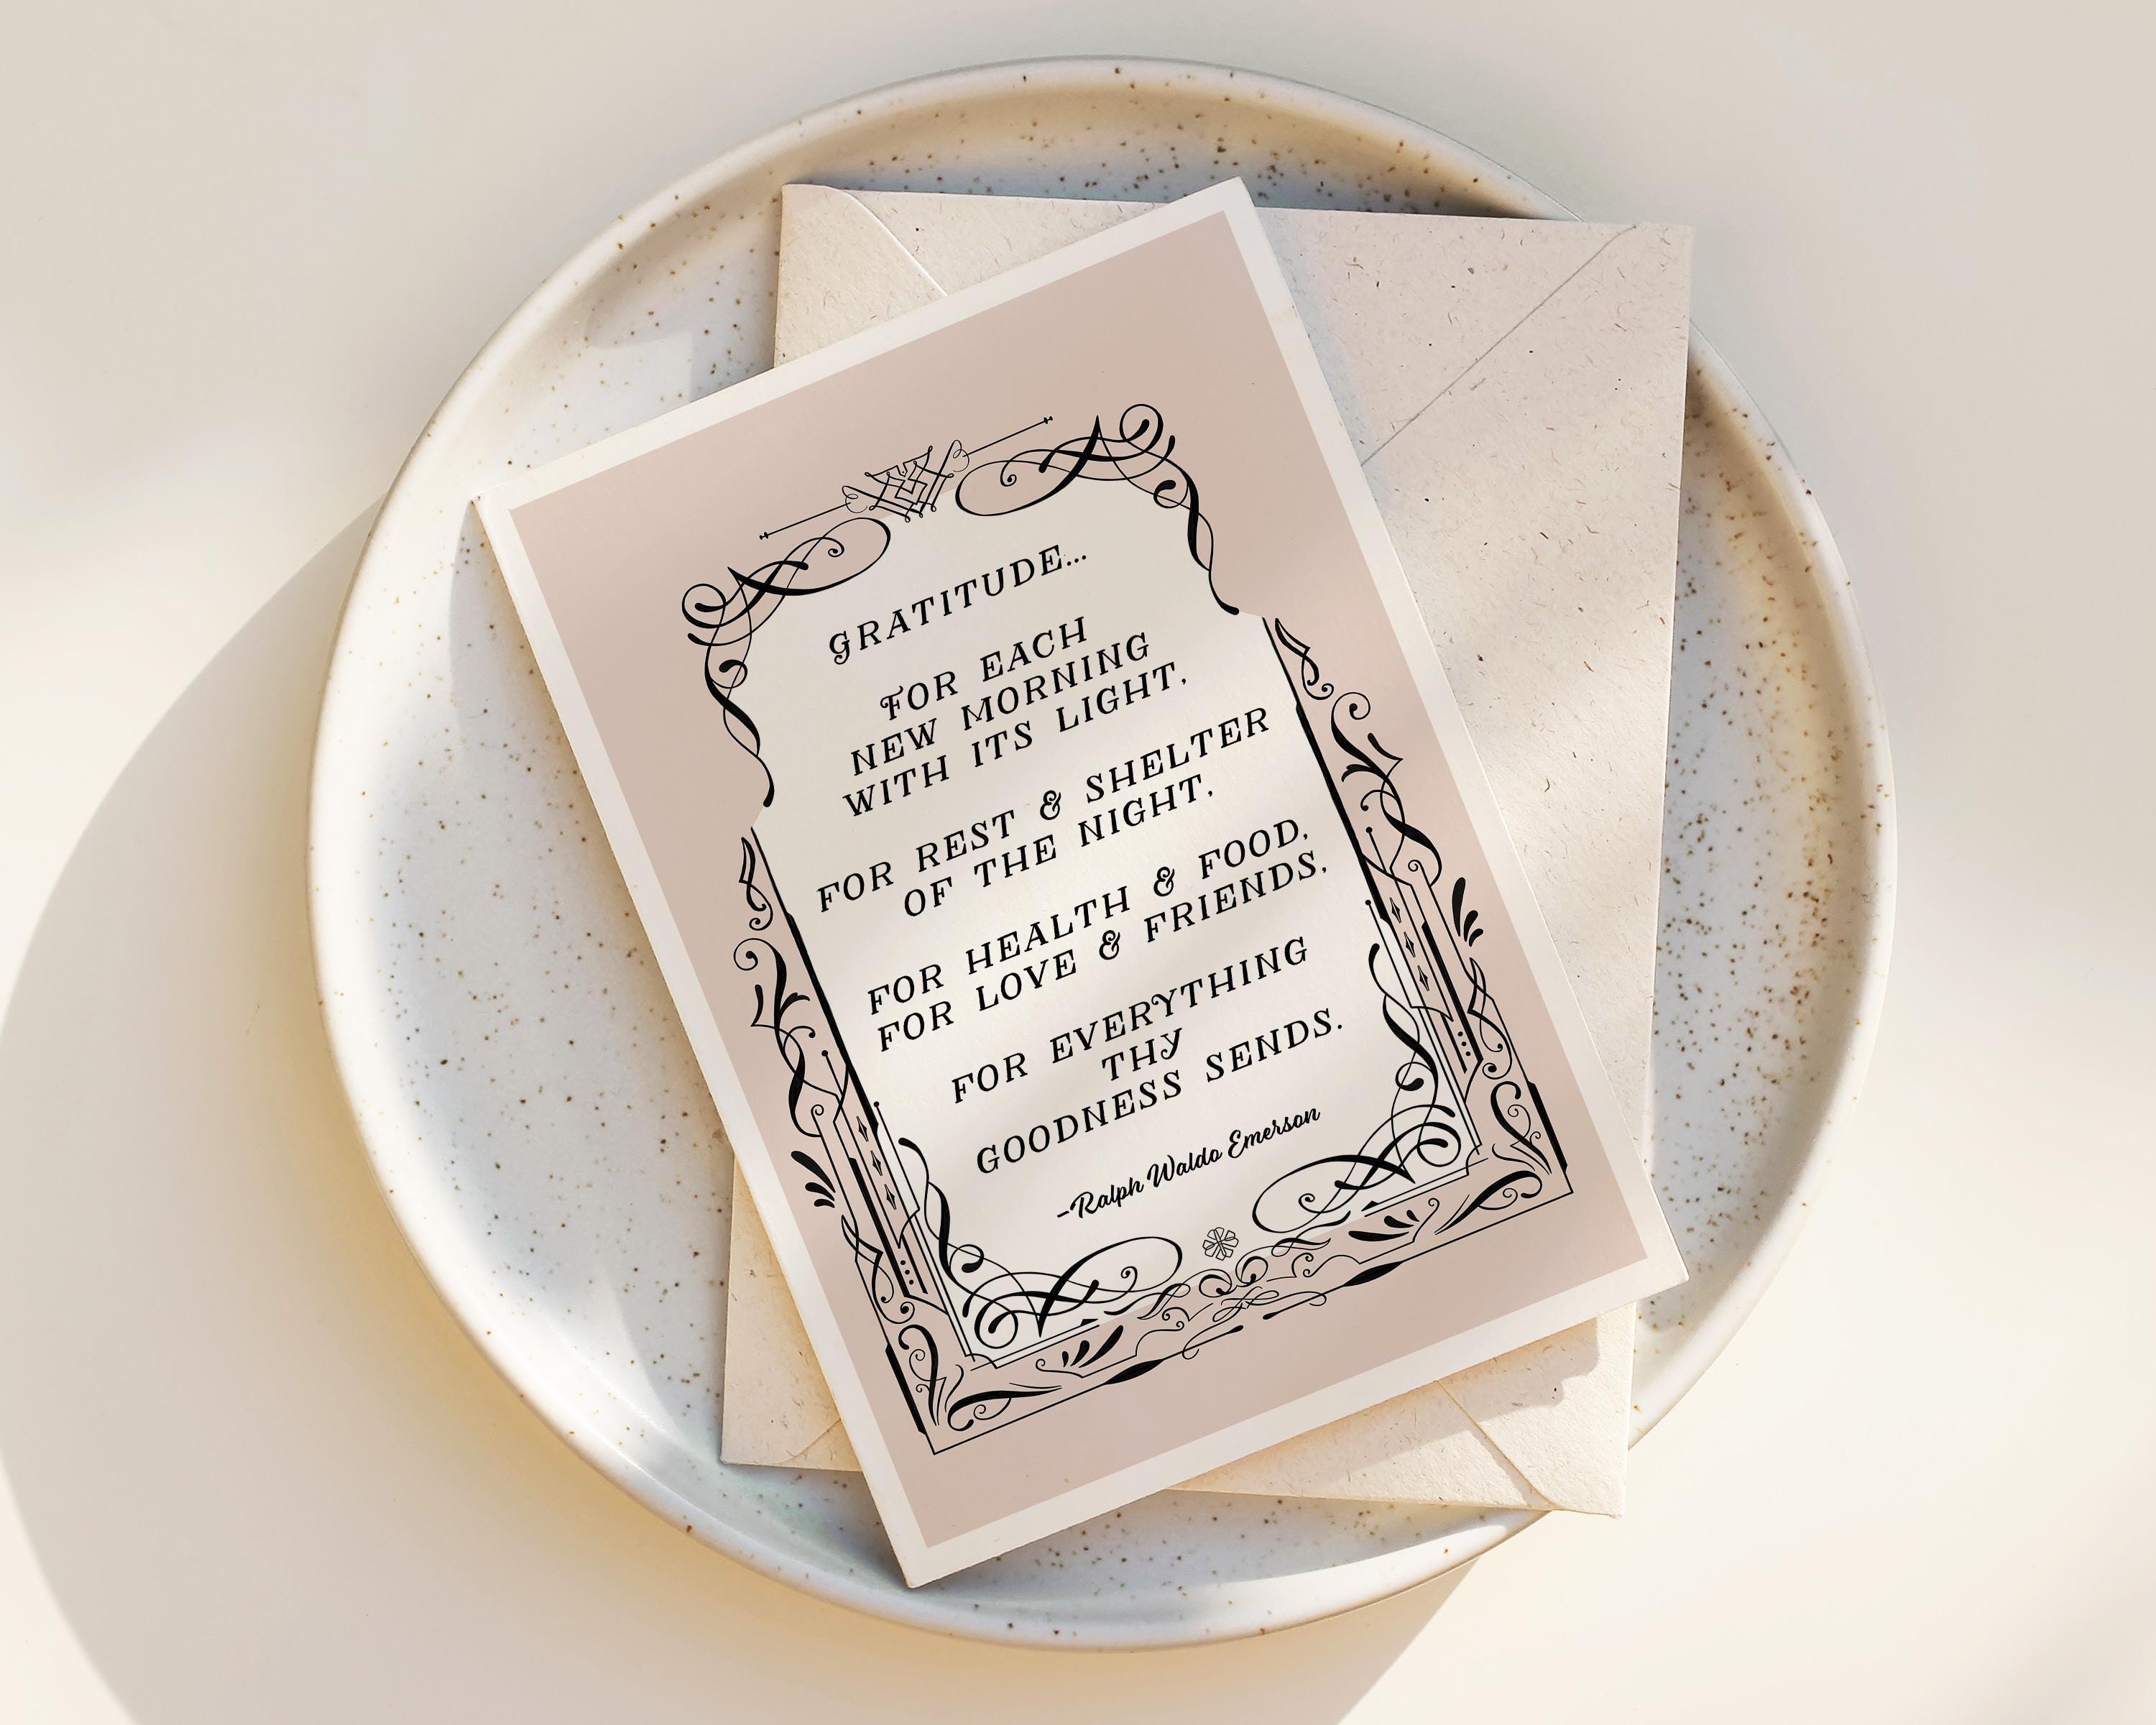 GRATITUDE...
FOR EACH
NEW MORNING
WITH ITS LIGHT,
FOR REST & SHELTER
OF THE NIGHT,
FOR HEALTH & FOOD,
FOR LOVE & FRIENDS,
FOR EVERYTHING
THY
GOODNESS SENDS.
-Ralph Waldo Emerson